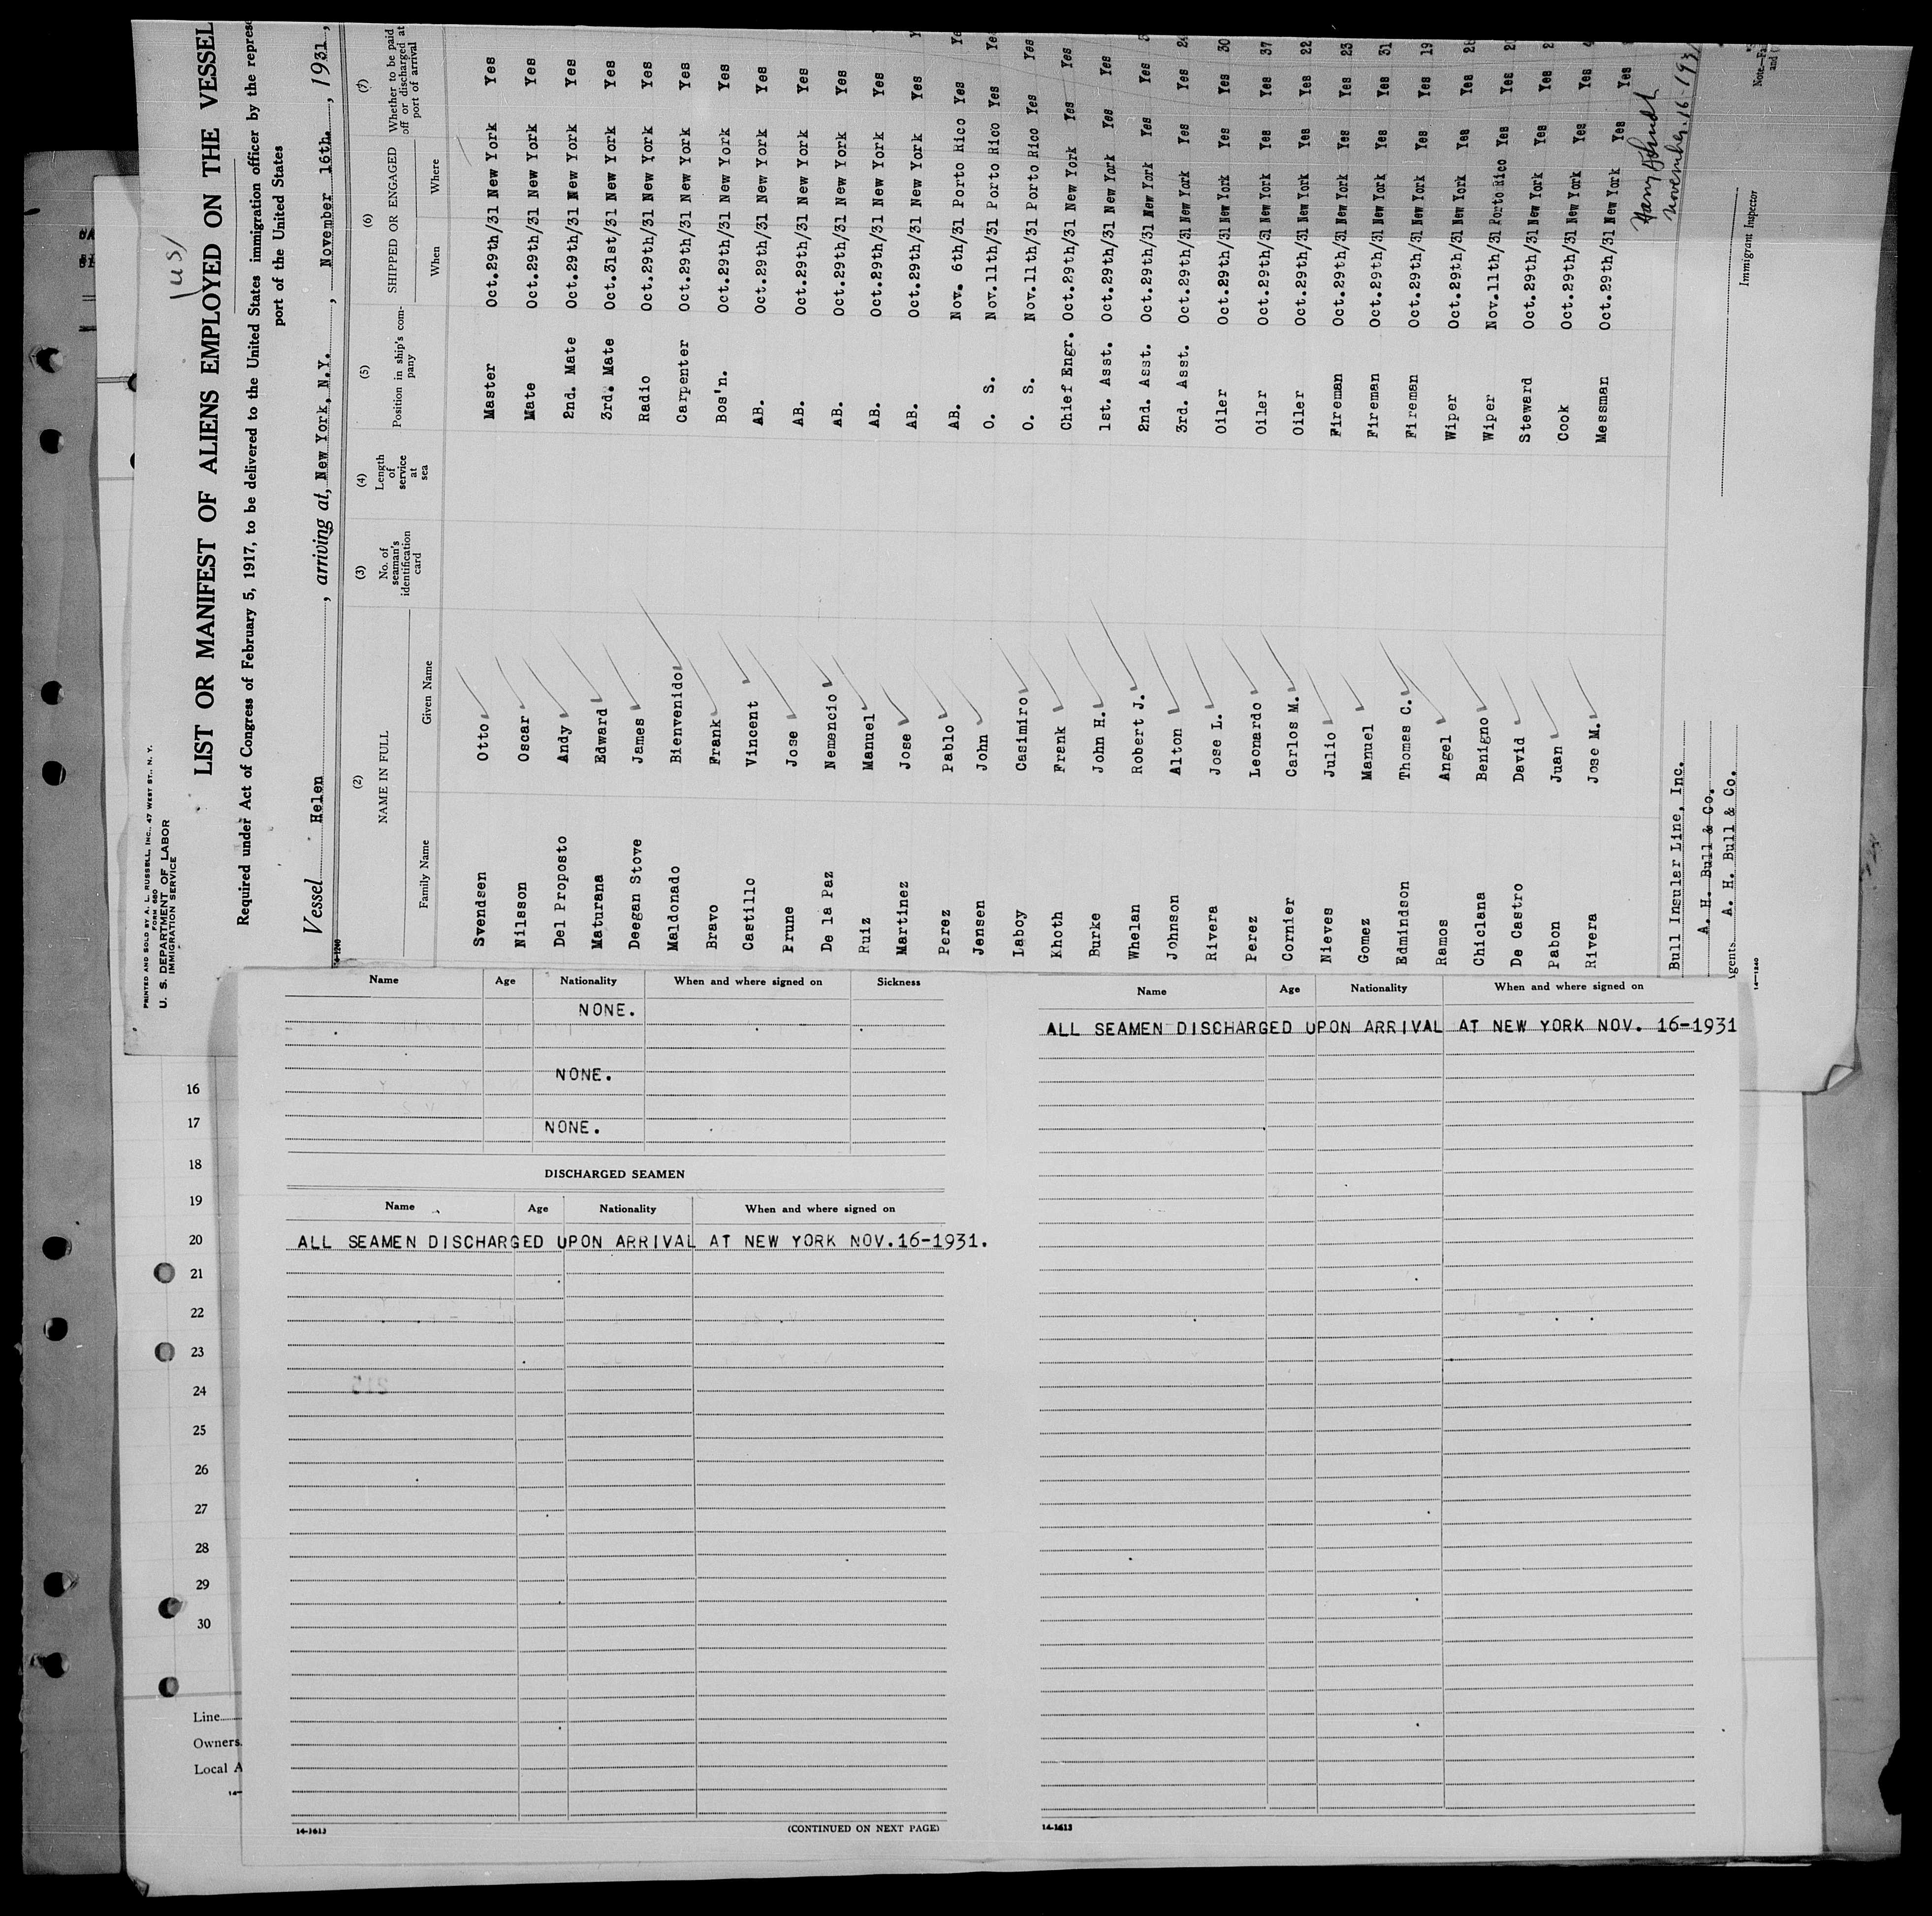 PRINTED AND SOLD BY A. L. RUSSELL, INC., 47 WEST ST., N. Y.
FORM 680
U. S. DEPARTMENT OF LABOR
IMMIGRATION SERVICE
(us)
LIST OR MANIFEST OF ALIENS EMPLOYED ON THE VESSEL
Required under Act of Congress of February 5, 1917, to be delivered to the United States immigration officer by the represe
port of the United States
Vessel Helen, arriving at, New York, N.Y., November 16th., 1931,
14-1240
(2) (3) (4) (5) (6) (7)
NAME IN FULL No. of seaman's identification card Length of service at sea Position in ship's company SHIPPED OR ENGAGED Whether to be paid off or discharged at port of arrival
Family Name Given Name When Where
Svendsen Otto Master Oct.29th/31 New York Yes
Nilsson Oscar Mate Oct.29th/31 New York Yes
Del Proposto Andy 2nd. Mate Oct.29th/31 New York Yes
Maturana Edward 3rd. Mate Oct.31st/31 New York Yes
Deegan Stove James Radio Oct.29th/31 New York Yes
Maldonado Bienvenido Carpenter Oct.29th/31 New York Yes
Bravo Frank Bos'n. Oct.29th/31 New York Yes
Castillo Vincent AB. Oct.29th/31 New York Yes
Prune Jose AB. Oct.29th/31 New York Yes
De la Paz Nemencio AB. Oct.29th/31 New York Yes
Ruiz Manuel AB. Oct.29th/31 New York Yes
Martinez Jose AB. Oct.29th/31 New York Yes Y
Perez Pablo AB. Nov. 6th/31 Porto Rico Yes Ye
Jensen John O. S. Nov.11th/31 Porto Rico Yes Ye
Laboy Casimiro O. S. Nov.11th/31 Porto Rico Yes Yes
Khoth Frank Chief Engr. Oct.29th/31 New York Yes Yes
Burke John H. 1st. Asst. Oct.29th/31 New York Yes Yes
Whelan Robert J. 2nd. Asst. Oct.29th/31 New York Yes Yes
Johnson Alton 3rd. Asst. Oct.29th/31 New York Yes Yes 24
Rivera Jose L. Oiler Oct.29th/31 New York Yes Yes 30
Perez Leonardo Oiler Oct.29th/31 New York Yes Yes 37
Cornier Carlos M. Oiler Oct.29th/31 New York Yes Yes 22
Nieves Julio Fireman Oct.29th/31 New York Yes Yes 23
Gomez Manuel Fireman Oct.29th/31 New York Yes Yes 31
Edmindson Thomas C. Fireman Oct.29th/31 New York Yes Yes 19
Ramos Angel Wiper Oct.29th/31 New York Yes Yes
Chiclana Benigno Wiper Nov.11th/31 Porto Rico Yes Yes
De Castro David Steward Oct.29th/31 New York Yes Yes
Pabon Juan Cook Oct.29th/31 New York Yes Yes
Rivera Jose M. Messman Oct.29th/31 New York Yes Yes
November 16-193
Bull Insular Line, Inc.
A. H. Bull & Co.
Agents A. H. Bull & Co.
Immigrant Inspector
14-1240
Name Age Nationality When and where signed on Sickness
NONE.
NONE.
NONE.
DISCHARGED SEAMEN
Name Age Nationality When and where signed on
ALL SEAMEN DISCHARGED UPON ARRIVAL AT NEW YORK NOV.16-1931.
14-1613
(CONTINUED ON NEXT PAGE)
Name Age Nationality When and where signed on
ALL SEAMEN DISCHARGED UPON ARRIVAL AT NEW YORK NOV. 16-1931
14-1613
16
17
18
19
20
21
22
23
24
25
26
27
28
29
30
Line
Owners
Local A
14-